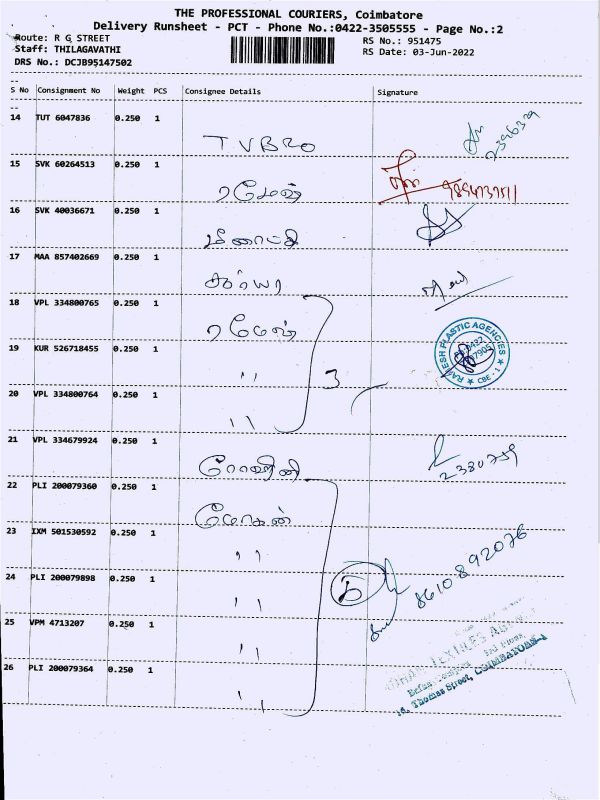 THE PROFESSIONAL COURIERS, Coimbatore
Delivery Runsheet - PCT - Phone No.:0422-3505555 - Page No.:2
Route: R G STREET
RS No.: 951475
Staff: THILAGAVATHI
RS Date: 03-Jun-2022
DRS No.: DCJB95147502
S No Consignment No Weight PCS Consignee Details Signature
14 TUT 6047836 0.250 1
TVBRO
15 SVK 60264513 0.250 1
ரமேஷ்
16 SVK 40036671 0.250 1
மீனாட்சி
17 MAA 857402669 0.250 1
18 VPL 334800765 0.250 1
ரமேஷ்
19 KUR 526718455 0.250 1
" 3
RAMESH PLASTIC AGENCIES
CBE - 1
20 VPL 334800764 0.250 1
"
21 VPL 334679924 0.250 1
2380759
22 PLI 200079360 0.250 1
மோகன்
23 IXM 501530592 0.250 1
"
24 PLI 200079898 0.250 1
" 5
8610892076
25 VPM 4713207 0.250 1
"
26 PLI 200079364 0.250 1
"
16, Thomas Street, COIMBATORE-1